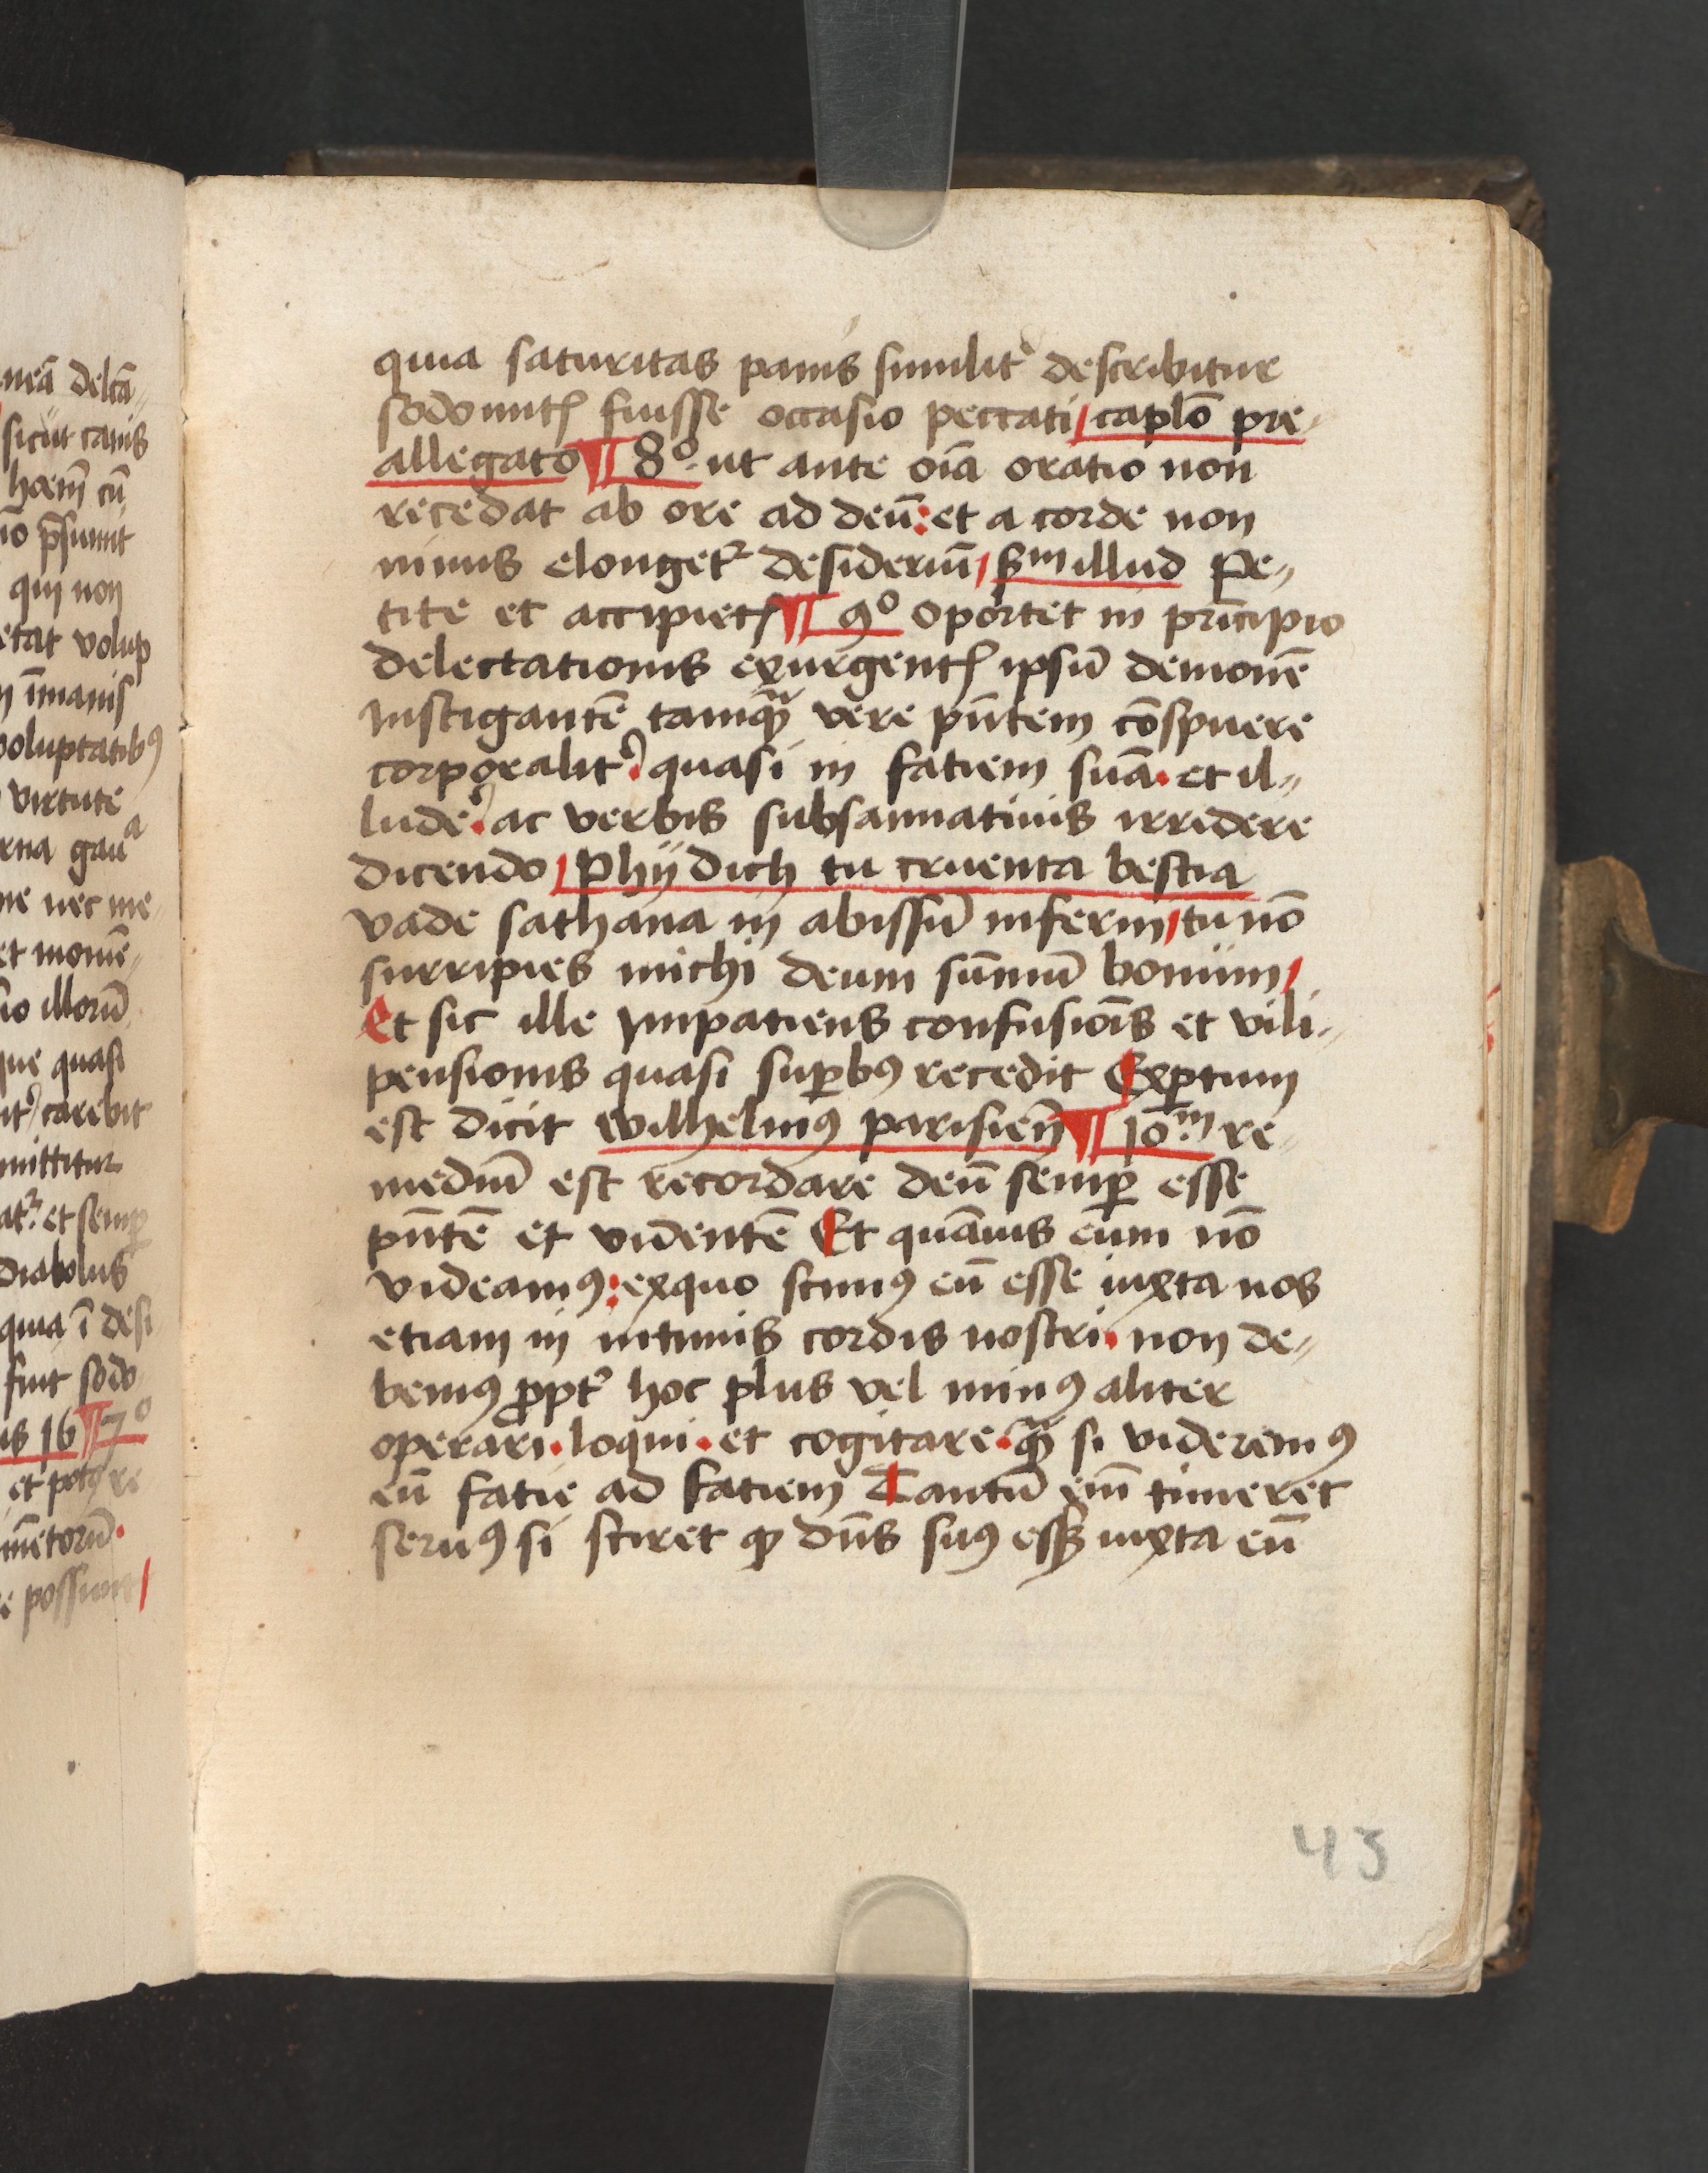 neā delcā-
sicut canis
hoēm cū
qui non
etat volup
īmanis
voluptatibꝰ
virtute
erna gauᵃ
ne nec me-
et momē-
illorū
que quasi
carebit
mittitur
et semꝑ
diabolus
quia ī desi
fuit sodo
is 16 ¶ 7º
possunt
quia saturitas panis similitˀ describitur
sodomitꝭ fuisse occasio peccati / caplō pre-
allegato ¶ 8º. ut ante oīa oratio non
recedat ab ore ad deū: et a corde non
minus elongetˀ desideriū / sᵐ illud Pe-
tite et accipietꝭ ¶ 9º oportet in prīcipio
delectationis exurgentꝭ ipsū demonē
instigantē tamqᷓ vere pn̄tem cōspuere
corporalitˀ. quasi in faciem suā. et il-
ludeˀ. ac verbis subsannatiuis irridere
dicendo / Phÿ dich tu cruenta bestia
vade sathana in abissū inferni / tu nō
surripies michi deum sūmū bonum /
Et sic ille impatiens confusiōis et vili-
pensionis quasi suꝑbꝰ recedit Exꝑtum
est dicit Wilhelmꝰ parisieñ ¶ 10.ᵐ re-
mediū est recordare deū semꝑ esse
pn̄tē et vidētē Et quāuis eum nō
videamꝰ: exquo scimꝰ eū esse iuxta nos
etiam in intimis cordis nostri. non de-
bemꝰ ꝓptˀ hoc plus vel minꝰ aliter
operari. loqui. et cogitare. qᷓ si videremꝰ
eū facie ad faciem Tantū em̄ timeret
seruꝰ si sciret ꝙ dn̄s suꝰ esset iuxta eū
43